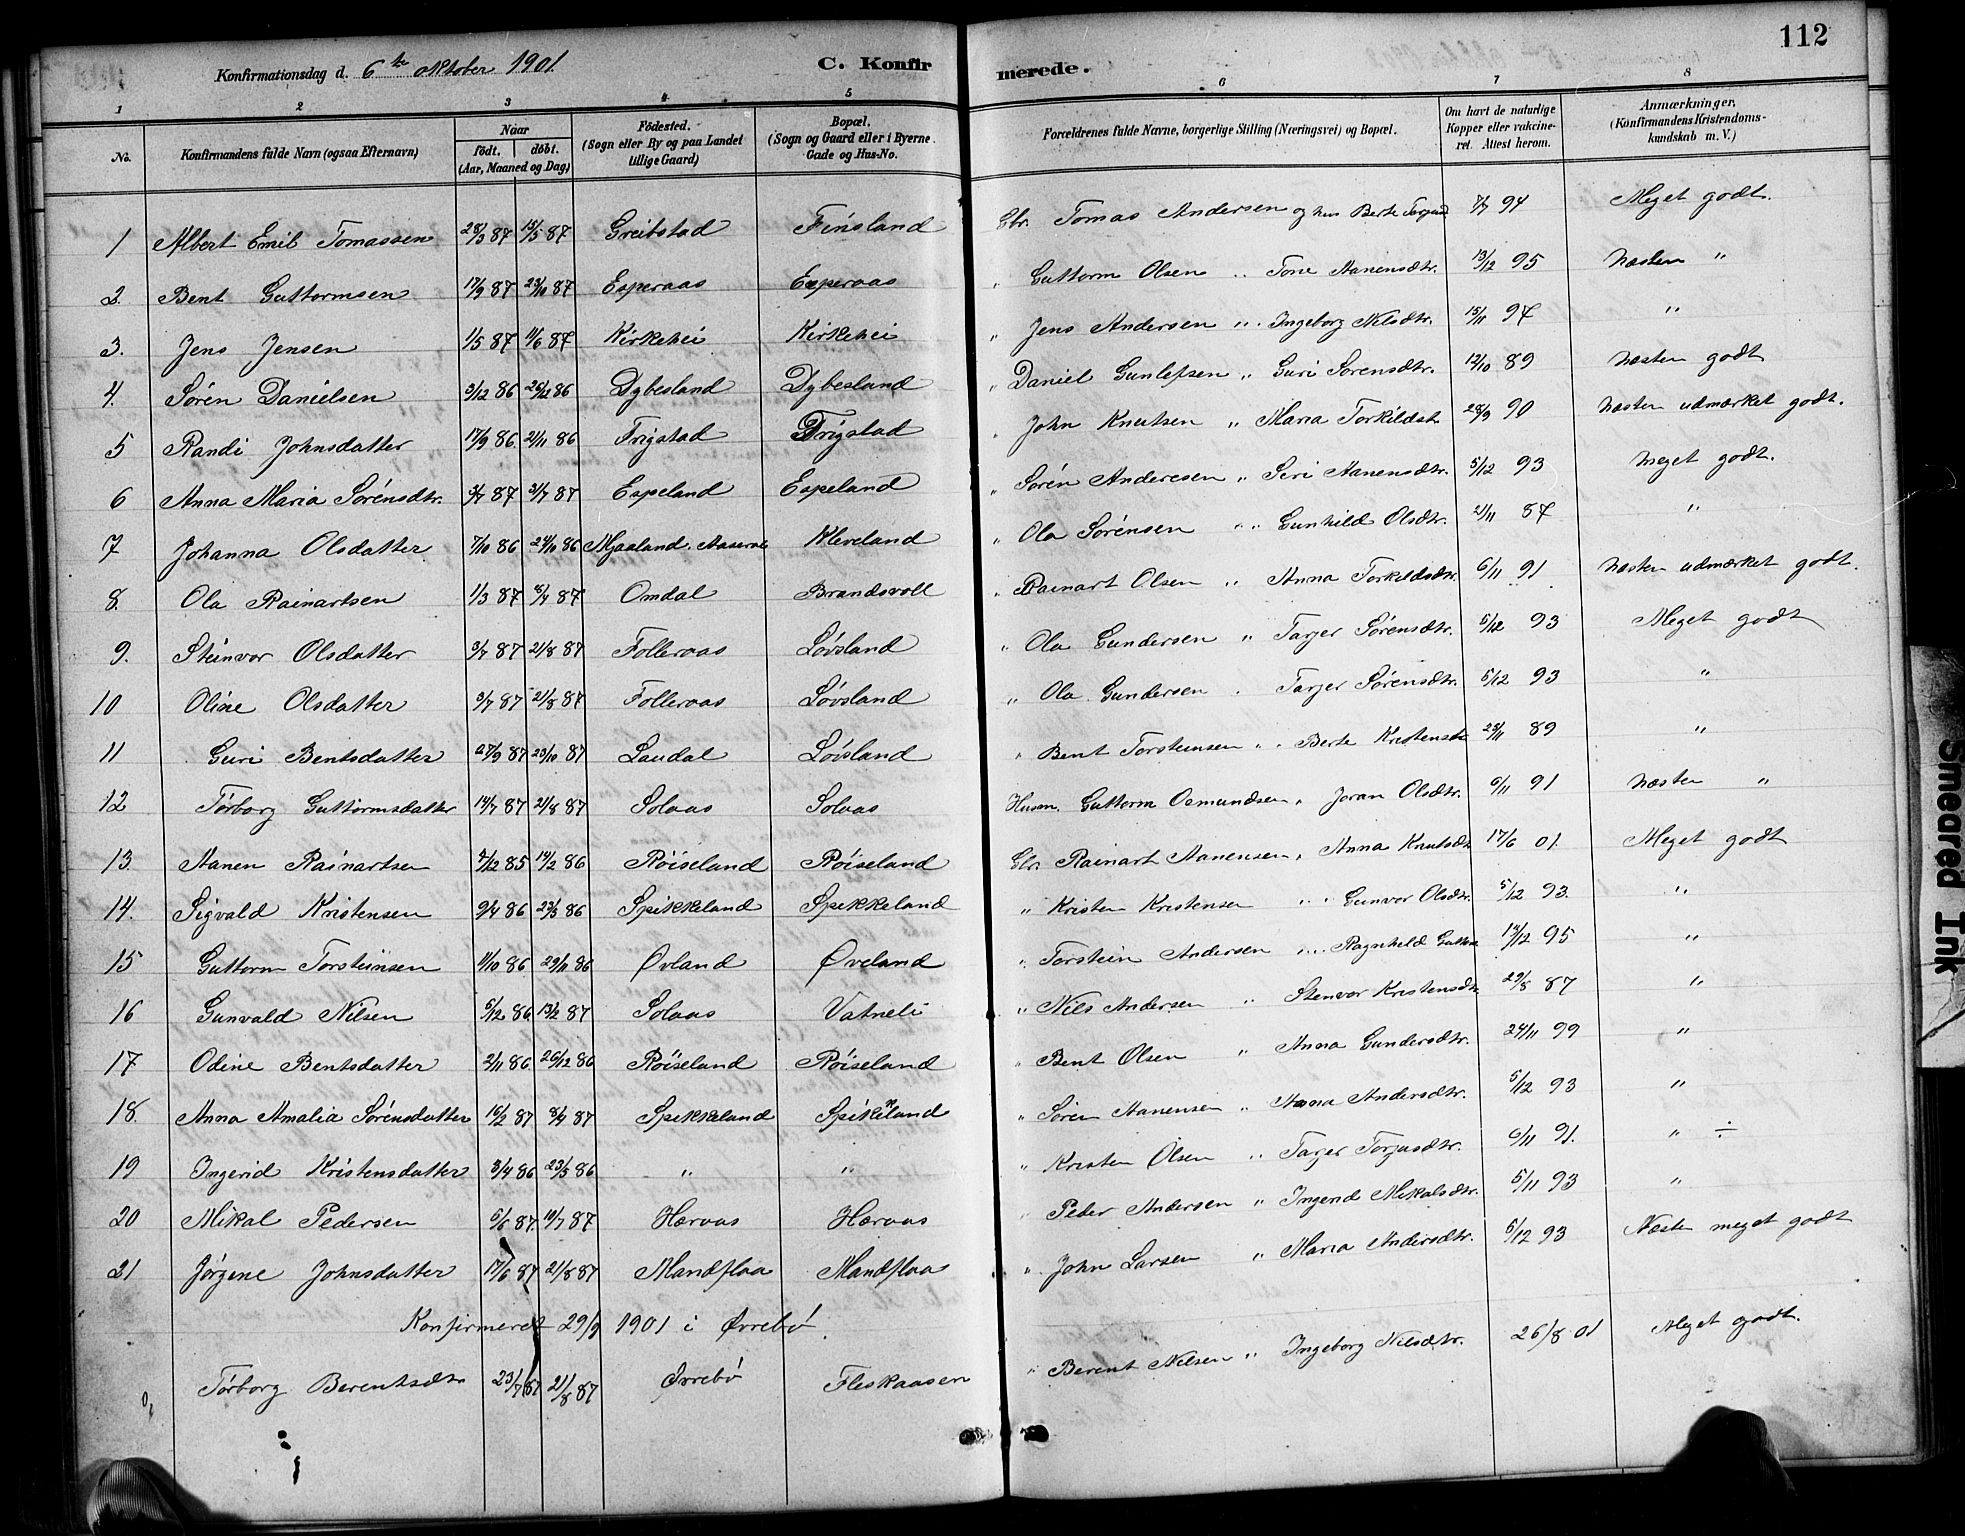 112
Konfirmationsdag d. 6te oktober 1901. C. Konfirmerede.
1 2 3 4 5 6 7 8
No. Konfirmandens fulde Navn (ogsaa Efternavn) Naar født. døbt. (Aar, Maaned og Dag) Fødested. (Sogn eller By og paa Landet tillige Gaard) Bopæl. (Sogn og Gaard eller i Byerne Gade og Hus-No. Forældrenes fulde Navne, borgerlige Stilling (Næringsvei) og Bopæl. Om havt de naturlige Kopper eller vakcineret. Attest herom. Anmærkninger, (Konfirmandens Kristendomskundskab m. V.)
1 Albert Emil Tomassen 28/3 87 15/5 87 Greibstad Finsland Gbr. Tomas Andersen og hus Berte Torjusd 7/7 94 Meget godt.
2. Bent Guttormsen 17/9 87 23/10 87 Esperaas Esperaas " Guttorm Olsen " Tone Aanensdtr. 13/12 95 Næsten "
3. Jens Jensen 1/5 87 11/6 87 Kirkehei Kirkehei " Jens Andersen " Ingeborg Nilsdtr. 15/11 94 "
4. Søren Danielsen 3/12 86 26/12 86 Dybesland Dybesland " Daniel Gunlefsen " Guri Sørensdtr. 12/10 89 Næsten godt
5 Randi Johnsdatter 17/9 86 21/11 86 Frigstad Frigstad " John Knutsen " Maria Torkildsdt 28/9 90 Næsten udmærket godt.
6 Anna Maria Sørensdtr. 3/7 87 31/7 87 Espeland Espeland " Søren Andersen " Siri Aanensdtr. 5/12 93 Meget godt.
7 Johanna Olsdatter 7/10 86 24/10 86 Mjaaland, Aaseral Kleveland " Ola Sørensen " Gunhild Olsdtr. 21/11 87 "
8. Ola Rainartsen 1/3 87 8/4 87 Omdal Brandsvoll " Rainart Olsen " Anna Torkildsdtr. 6/11 91 Næsten udmærket godt.
9. Steinvor Olsdatter 3/7 87 21/8 87 Folleraas Løvsland " Ola Gundersen " Tarjer Sørensdtr. 5/12 93 Meget godt
10 Oline Olsdatter 3/7 87 21/8 87 Folleraas Løvsland " Ola Gundersen " Tarjer Sørensdtr. 5/12 93 "
11 Guri Bentsdatter 27/9 87 23/10 87 Laudal Løvsland " Bent Torsteinsen " Berte Kristensdtr 23/11 89 "
12 Tørborg Guttormsdatter 14/7 87 21/8 87 Solaas Solaas Husm. Guttorm Osmundsen " Joran Olsdtr. 6/11 91 Næsten "
13. Aanen Rainartsen 7/12 85 14/2 86 Røiseland Røiseland Gbr. Rainart Aanensen " Anna Knutsdt 17/6 01. Meget godt
14. Sigvald Kristensen 9/4 86 23/5 86 Spikkeland Spikkeland " Kristen Kristensen " Gunvor Olsdtr. 5/12 93. "
15 Guttorm Torsteinsen 11/10 86 29/11 86 Øvland Øveland " Torstein Andersen " Ragnhild Guttorm 13/12 95 "
16 Gunvald Nilsen 5/12 86 13/2 87 Solaas Vatneli " Nils Andersen " Stenvor Kristensdtr 29/8 87 "
17 Odine Bentsdatter 2/11 86 26/12 86 Røiseland Røiseland " Bent Olsen " Anna Gundersdtr. 24/11 99 "
18. Anna Amalia Sørensdatter 15/2 87 8/4 87 Spikkeland Spikkeland " Søren Aanensen " Anna Andersdtr. 5/12 93 "
19 Ingerid Kristensdatter 3/4 86 23/5 86 " " " Kristen Olsen " Tarjer Torjusdtr. 6/11 91. " ÷
20 Mikal Pedersen 5/6 87 10/7 87 Høraas Høraas " Peder Andersen " Ingerid Mikalsdtr. 5/11 93 "
21 Jørgene Johnsdatter 17/6 87 21/8 87 Mandflaa Mandflaa " John Larsen " Maria Andersdtr. 5/12 93 Næsten meget godt
Konfirmeret 29/9 1901 i Øvrebø.
Tørborg Berentsdtr 23/7 87 21/8 87 Øvrebø Fleskaasen " Berent Nilsen " Ingeborg Nilsdtr. 26/8 01 Meget godt.
Smeared Ink